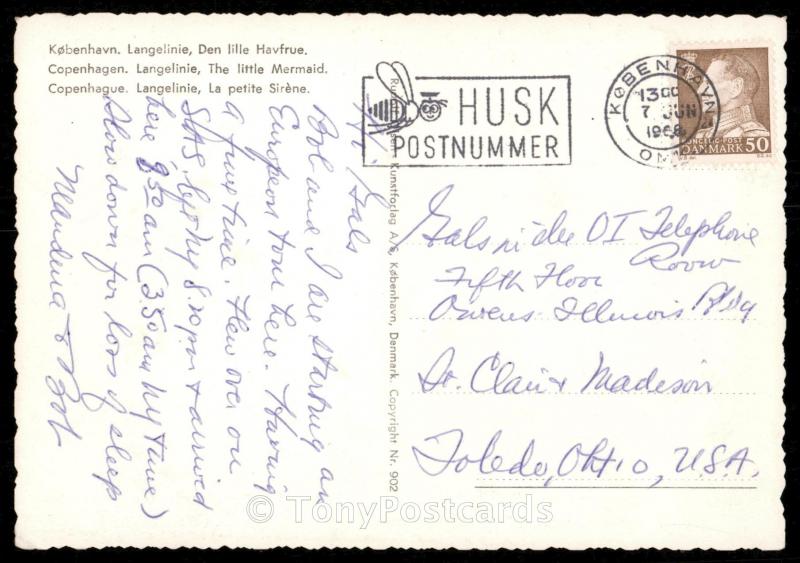 København. Langelinie, Den lille Havfrue.
Copenhagen. Langelinie, The little Mermaid.
Copenhague. Langelinie, La petite Sirène.
Hi, Gals
Bob and I are starting an
European tour here. Having
a fine time. Flew over on
SAS left NY 8.30pm & arrived
here 8.50 am (350 am NY time)
Slow down for loss of sleep
& Bob
Kunstforlag A/S, København, Danmark. Copyright Nr. 902
HUSK
POSTNUMMER
KØBENHAVN
13
7 JUN
1968
OMK
KONGELIG POST
DANMARK 50
Gals in the OI Telephone
Room
Fifth Floor
Owens Illinois Bldg
St. Clair & Madison
Toledo, Ohio, USA.
© TonyPostcards